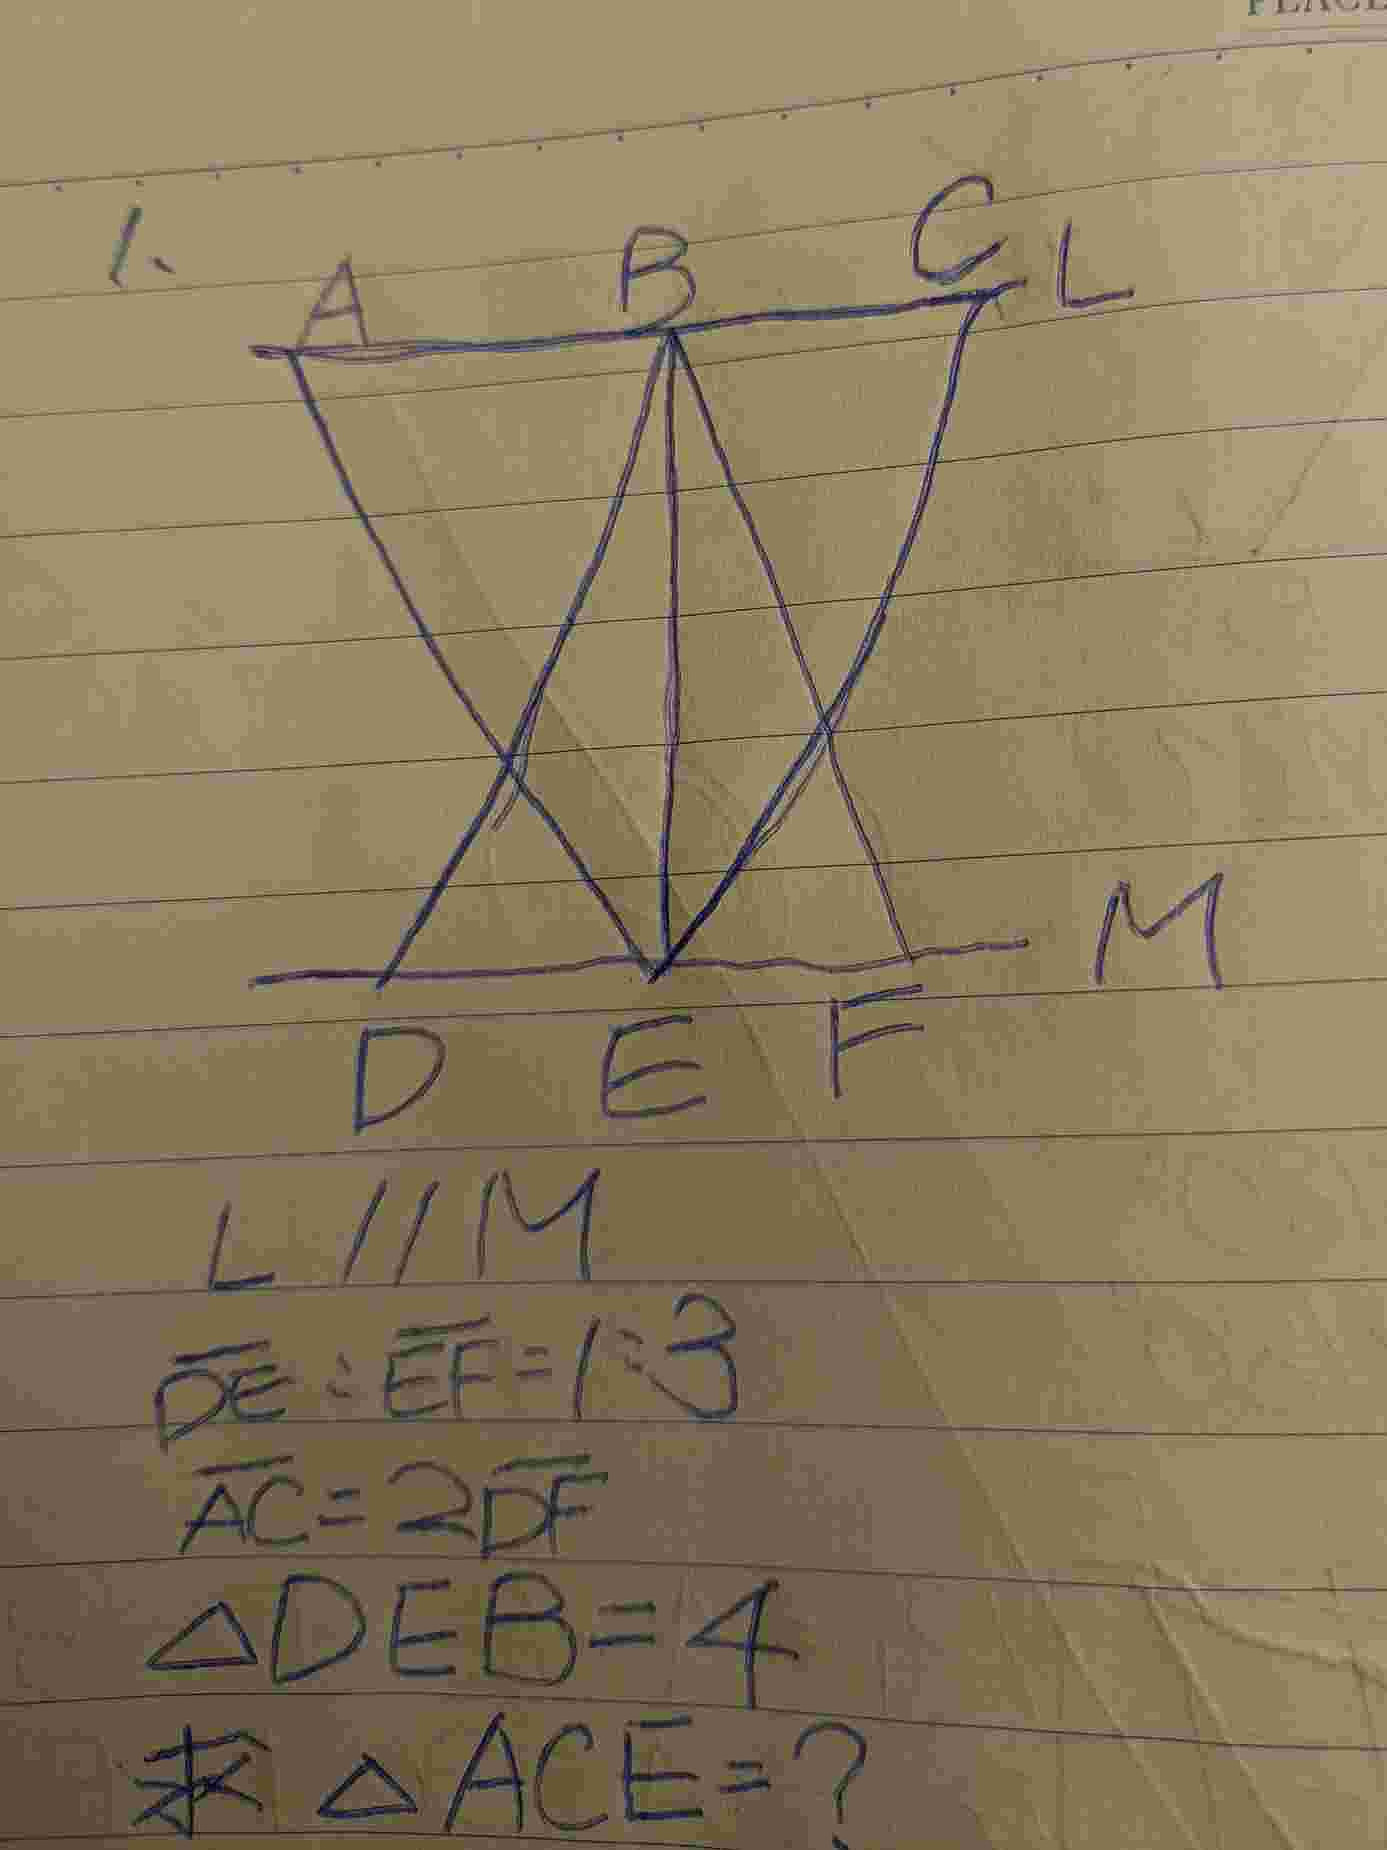 PLACE
1.
A B C L
M
D E F
L // M
D̅E̅ : E̅F̅ = 1 : 3
A̅C̅ = 2D̅F̅
△DEB = 4
求 △ACE = ?